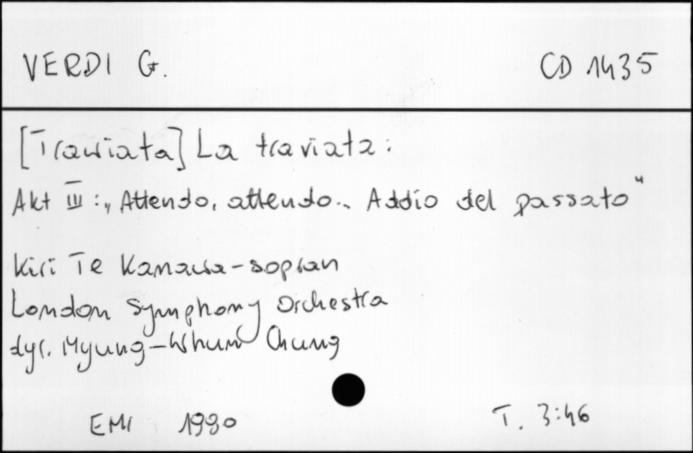 VERDI G. CD 1435
[Trawiata] La traviata:
Akt III: „Attendo, attendo... Addio del passato"
Kiri Te Kanawa - sopran
London Symphony Orchestra
dyr. Myung-Whun Chung
EMI 1990 T. 3:46